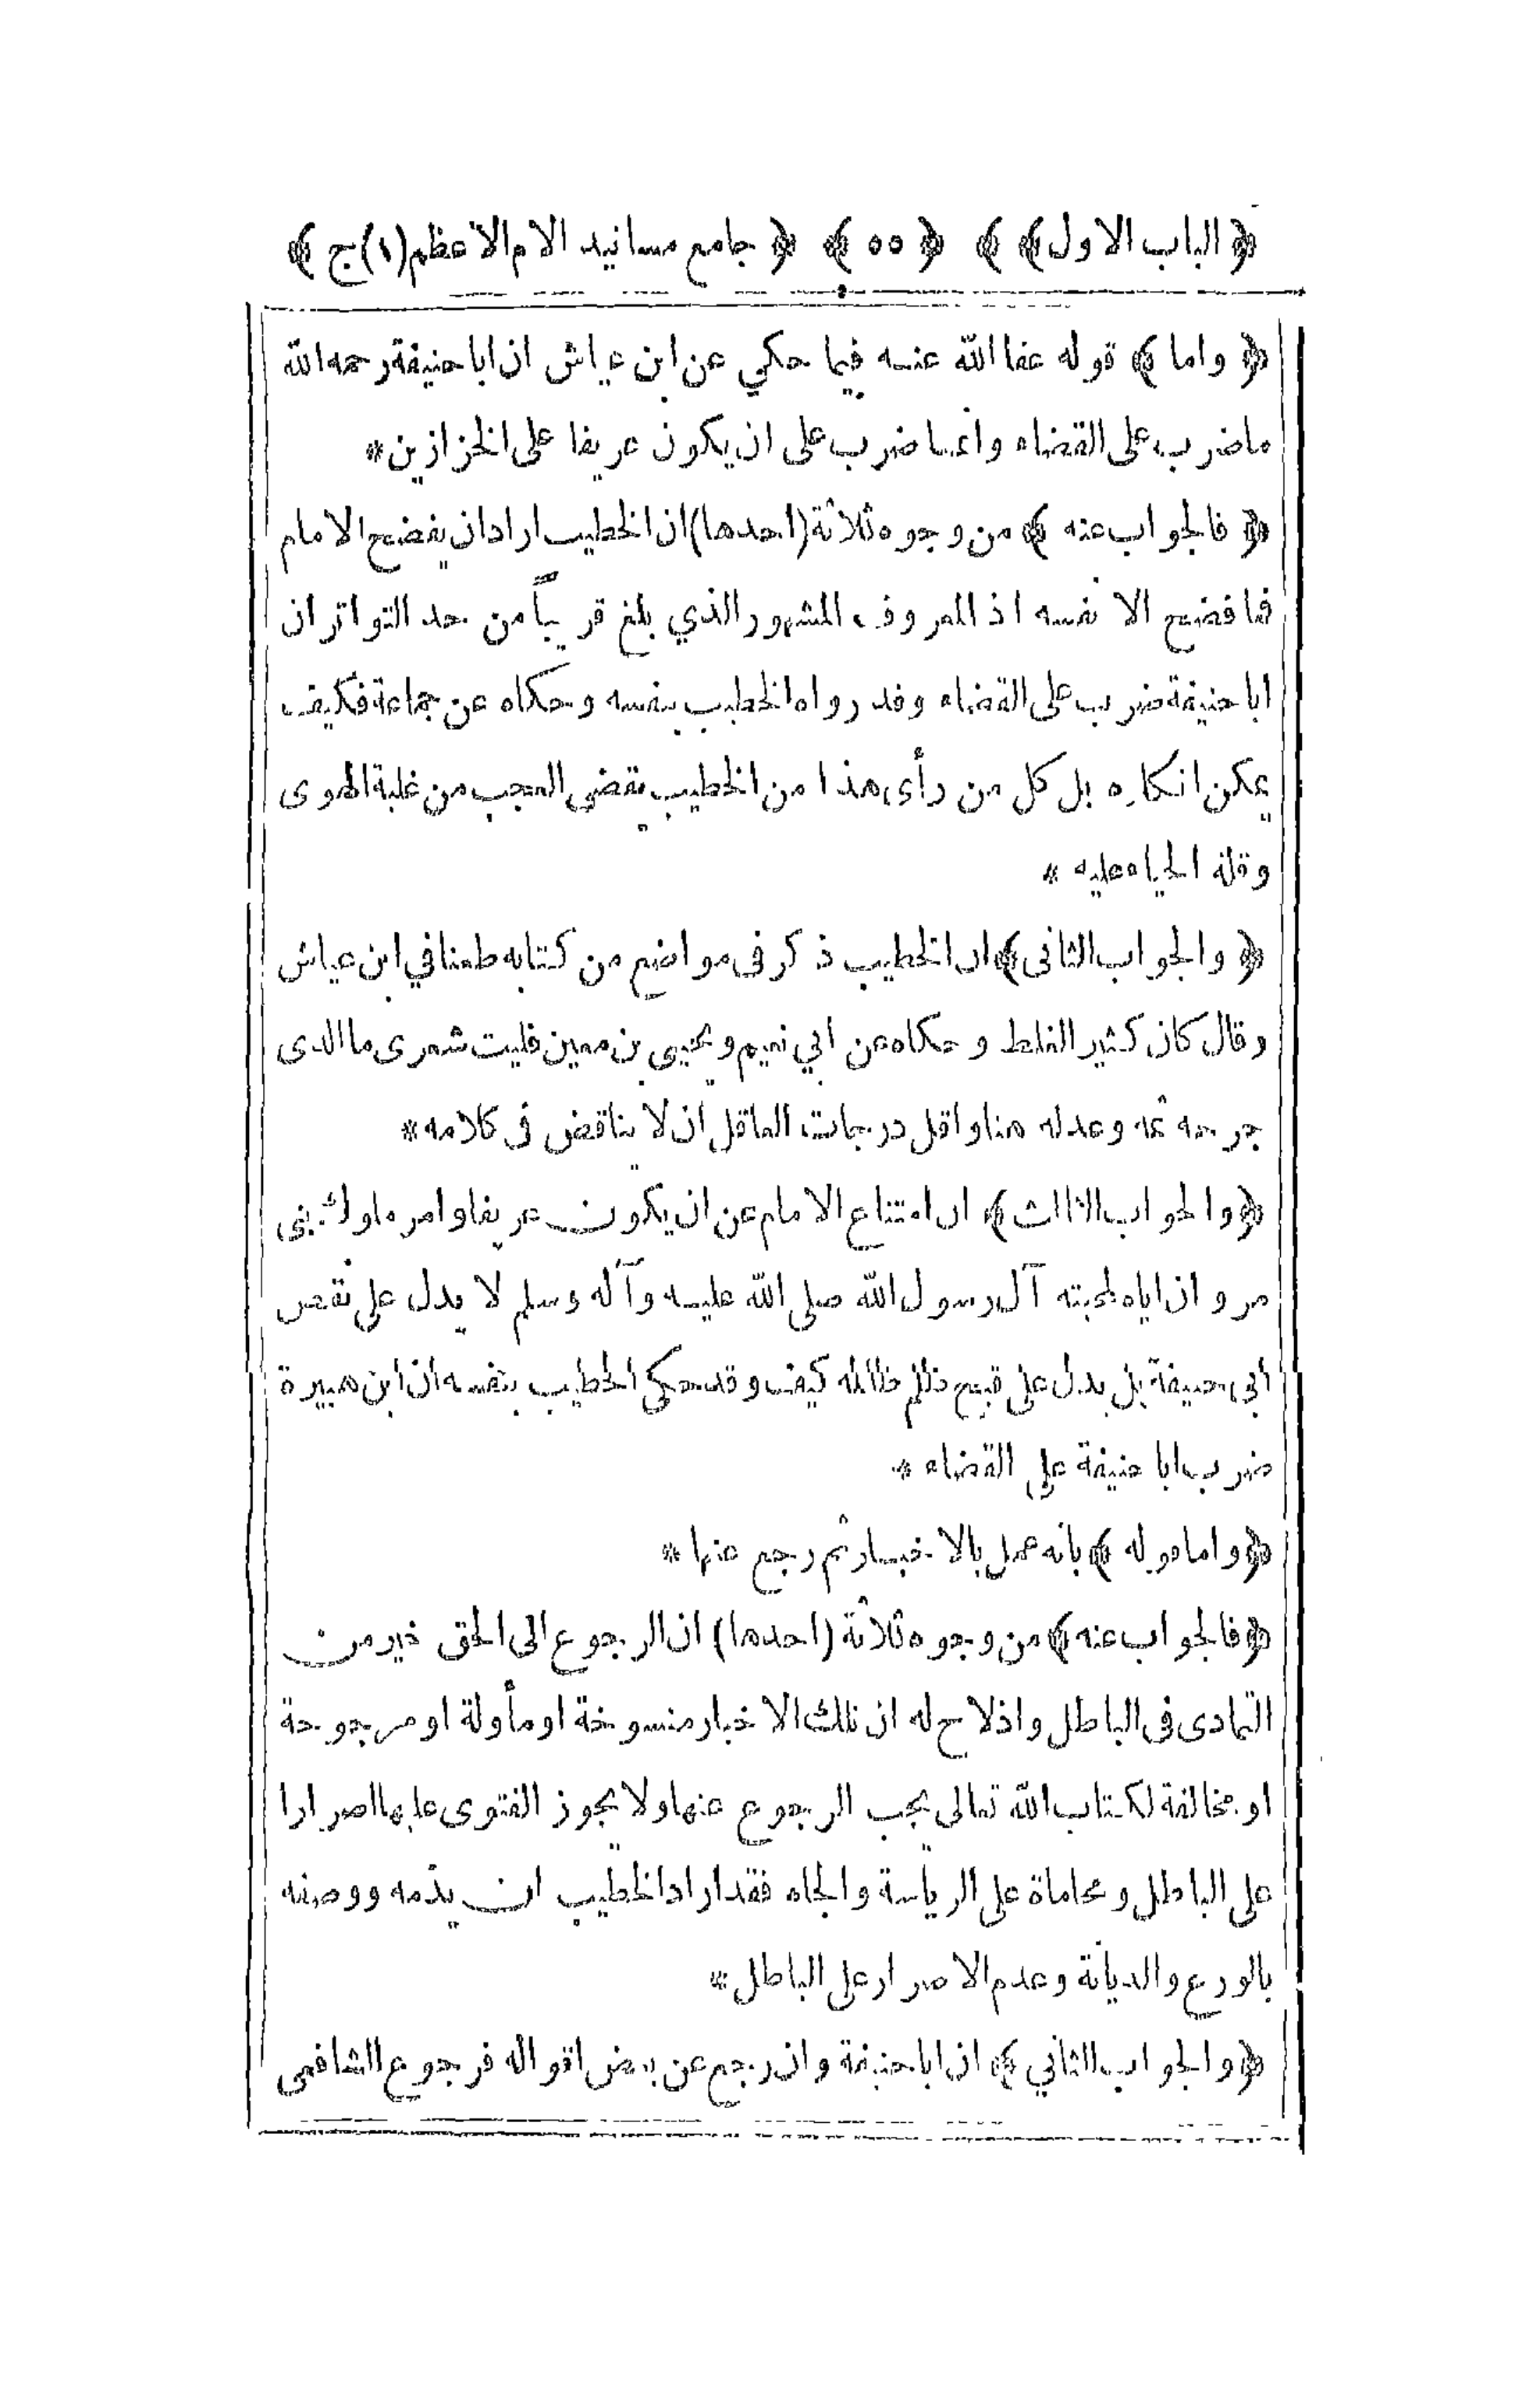 ﴿ الباب الاول ﴾ ﴿ ٥٥ ﴾ ﴿ جامع مسانيد الامام الاعظم (١) ج ﴾
﴿ واما ﴾ قوله عفا الله عنه فيما حكي عن ابن عياش ان ابا حنيفة رحمه الله
ما ضرب على القضاء وانما ضرب على ان يكون عريفا على الخزازين *
﴿ فالجواب عنه ﴾ من وجوه ثلاثة (احدها) ان الخطيب اراد ان يفضح الامام
فما فضح الا نفسه اذ المعروف المشهور الذي بلغ قريباً من حد التواتر ان
ابا حنيفة ضرب على القضاء وقد رواه الخطيب بنفسه وحكاه عن جماعة فكيف
يمكن انكاره بل كل من رأى هذا من الخطيب يقضى العجب من غلبة الهوى
وقلة الحياء عليه *
﴿ والجواب الثانى ﴾ ان الخطيب ذكر فى مواضع من كتابه طعنا في ابن عياش
وقال كان كثير الغلط وحكاه عن ابي نعيم ويحيى بن معين فليت شعرى ما الذى
جرحه ثمه وعدله هنا واقل درجات العاقل ان لا يناقض فى كلامه *
﴿ والجواب الثالث ﴾ ان امتناع الامام عن ان يكون عريفا وامره ملوك بنى
مروان اياه لمحبته آل رسول الله صلى الله عليه وآله وسلم لا يدل على نقص
ابى حنيفة بل يدل على قبح ظلم ظالمه كيف وقد حكى الخطيب بنفسه ان ابن هبيرة
ضرب ابا حنيفة على القضاء *
﴿ واما قوله ﴾ بانه عمل بالاخبار ثم رجع عنها *
﴿ فالجواب عنه ﴾ من وجوه ثلاثة (احدها) ان الرجوع الى الحق خير من
التمادى فى الباطل واذ لاح له ان تلك الاخبار منسوخة او مأولة او مرجوحة
او مخالفة لكتاب الله تعالى يجب الرجوع عنها ولا يجوز الفتوى عليها اصرارا
على الباطل ومحاماة على الرياسة والجاه فقد اراد الخطيب ان يذمه ووصفه
بالورع والديانة وعدم الاصرار على الباطل *
﴿ والجواب الثاني ﴾ ان ابا حنيفة وان رجع عن بعض اقواله فرجوع الشافعى